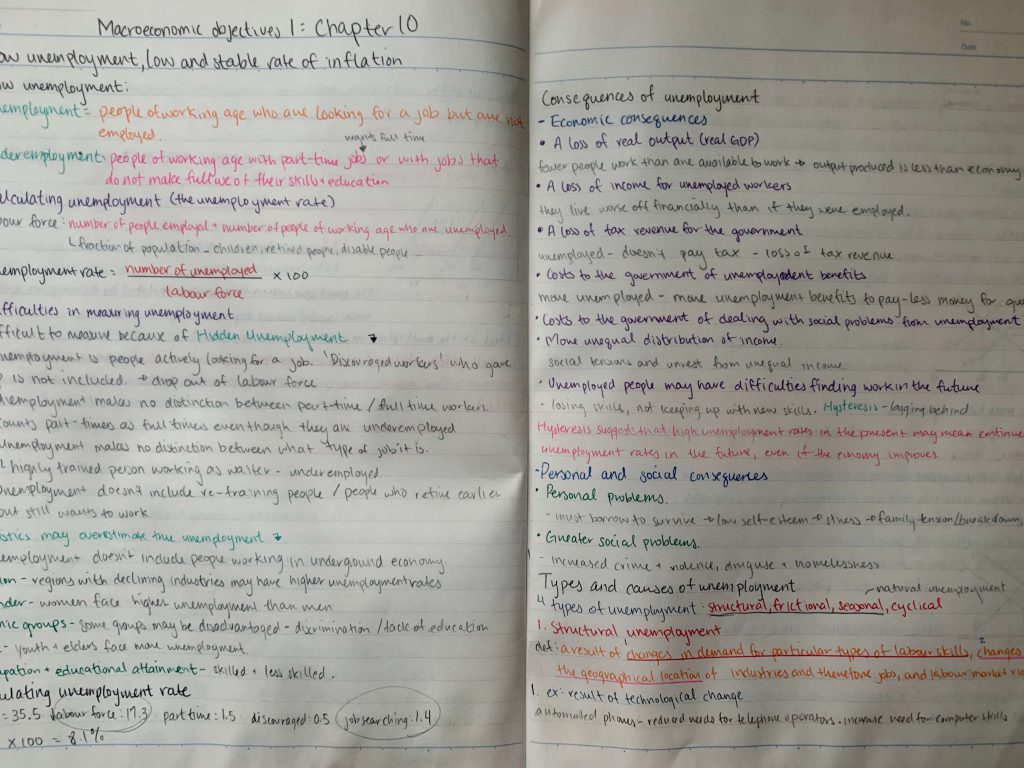 Macroeconomic objectives 1: Chapter 10
ow unemployment, low and stable rate of inflation
ow unemployment:
employment = people of working age who are looking for a job but are not
employed.
want full time
deremployment: people of working age with part-time jobs or with jobs that
do not make full use of their skills + education
lculating unemployment (the unemployment rate)
our force: number of people employed + number of people of working age who are unemployed
fraction of population - children, retired people, disable people -
employment rate = number of unemployed / labour force x 100
fficulties in measuring unemployment
fficult to measure because of Hidden Unemployment
nemployment is people actively looking for a job. 'Discouraged workers' who gave
p is not included. → drop out of labour force
nemployment makes no distinction between part-time / full time workers.
ounts part-times as full times even though they are underemployed
unemployment makes no distinction between what type of job it is.
highly trained person working as waiter - underemployed
unemployment doesn't include re-training people / people who retire earlier
but still wants to work
istics may overestimate true unemployment
employment doesn't include people working in underground economy.
on - regions with declining industries may have higher unemployment rates
nder - women face higher unemployment than men
nic groups - some groups may be disadvantaged - discrimination / lack of education
- youth + elders face more unemployment.
upation + educational attainment - skilled + less skilled.
ulating unemployment rate
= 35.5 labour force: 17.3 part time: 1.5 discouraged: 0.5 job searching: 1.4
x 100 = 8.1%
No.
Date
Consequences of unemployment
- Economic consequences
• A loss of real output (real GDP)
fewer people work than are available to work → output produced is less than economy
• A loss of income for unemployed workers
they live worse off financially than if they were employed.
• A loss of tax revenue for the government
unemployed - doesn't pay tax - loss of tax revenue
• Costs to the government of unemployment benefits
more unemployed - more unemployment benefits to pay - less money for
• Costs to the government of dealing with social problems from unemployment
• More unequal distribution of income
social tensions and unrest from unequal income.
• Unemployed people may have difficulties finding work in the future
- losing skills, not keeping up with new skills. Hysteresis - lagging behind
Hysteresis suggests that high unemployment rates in the present may mean continue
unemployment rates in the future, even if the economy improves
- Personal and social consequences
• Personal problems.
- must borrow to survive → low self-esteem → stress → family tension/breakdown,
• Greater social problems.
- increased crime + violence, drug use + homelessness
Types and causes of unemployment
natural unemployment
4 types of unemployment: structural, frictional, seasonal, cyclical
1. Structural unemployment
def: a result of changes in demand for particular types of labour skills, changes
the geographical location of industries and therefore jobs, and labour market
1. ex: result of technological change
automated phones - reduced needs for telephone operators. increase need for computer skills